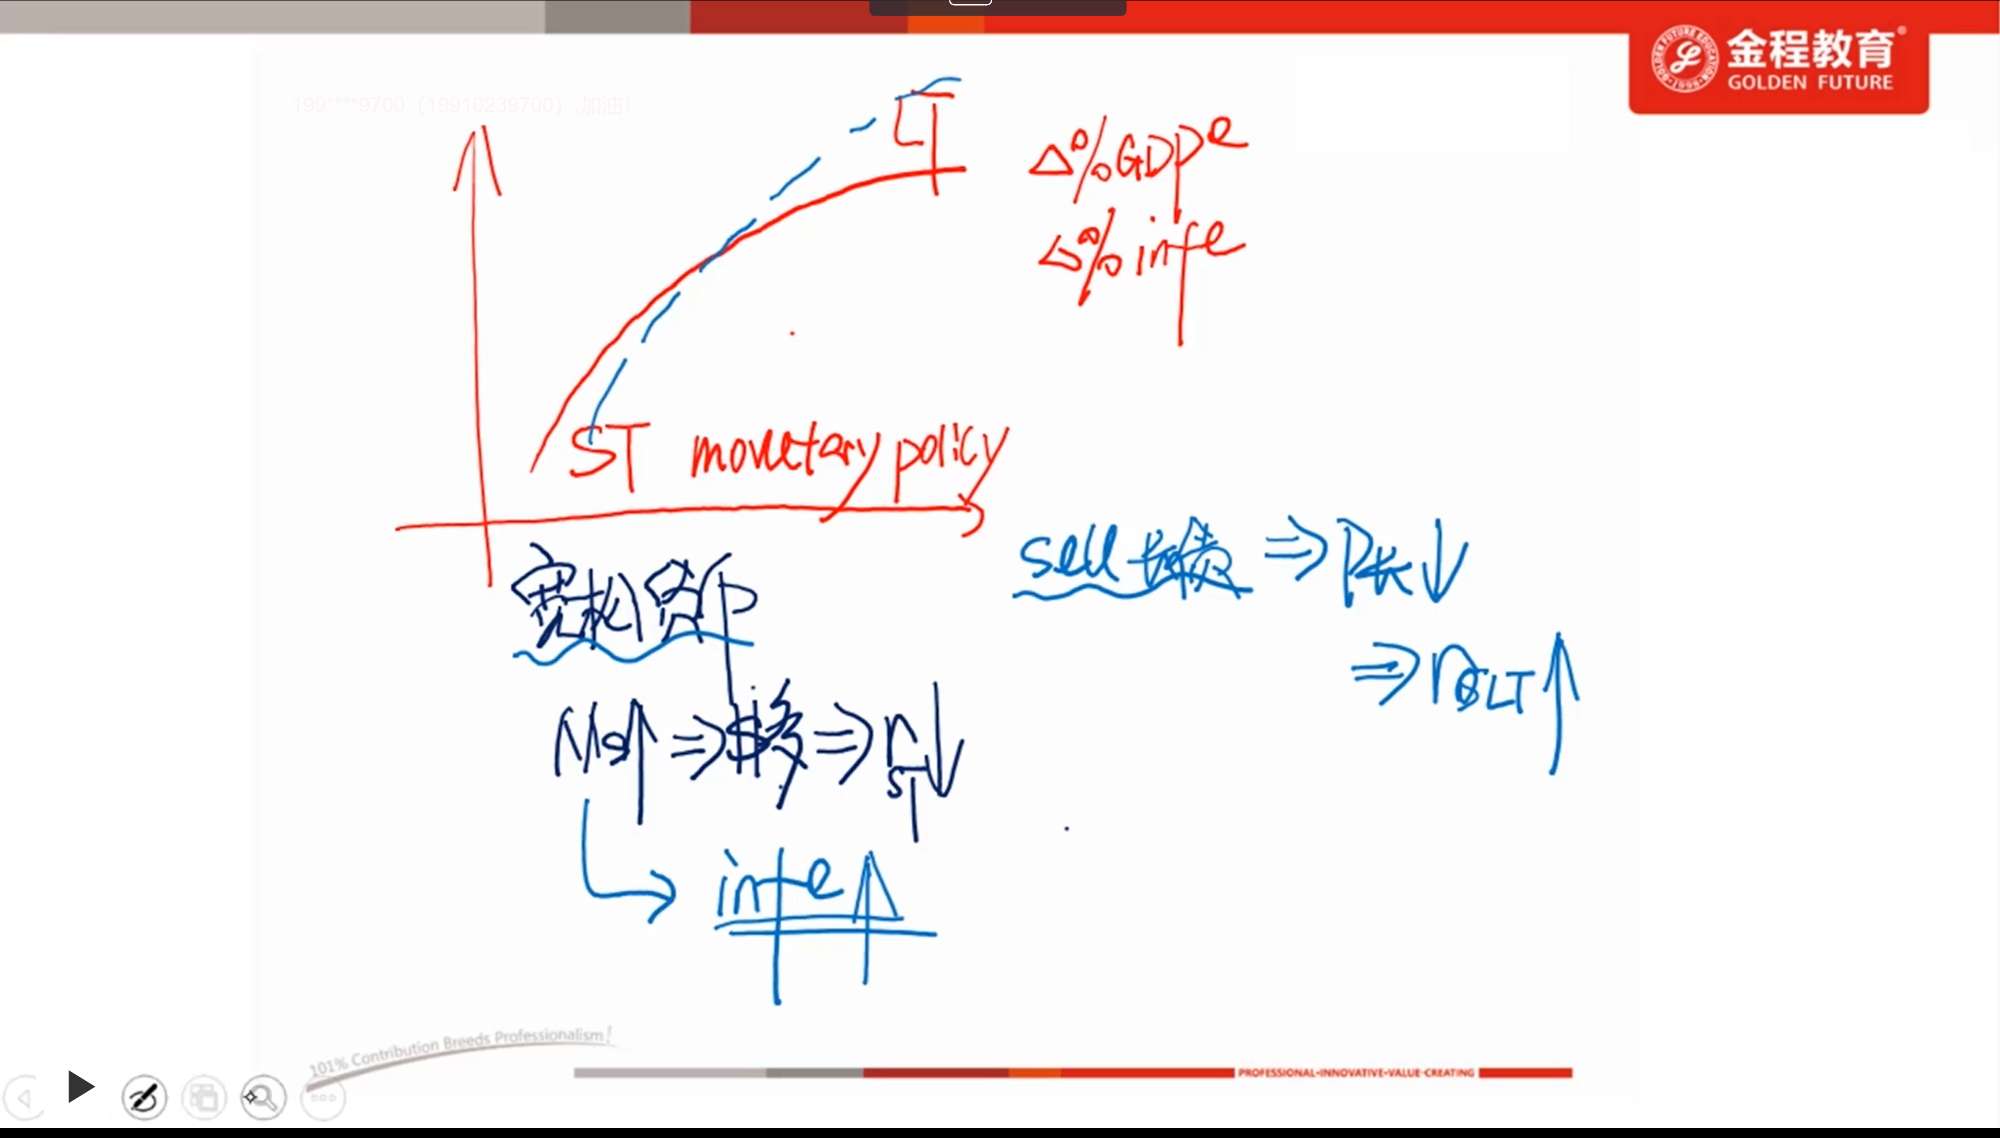 金程教育
GOLDEN FUTURE
LT
Δ%GDPe
Δ%infe
ST monetary policy
宽松货币
sell 长债 ⇒ P长↓
⇒ r LT↑
Ms↑ ⇒ $多 ⇒ r ST↓
infe↑
101% Contribution Breeds Professionalism!
PROFESSIONAL·INNOVATIVE·VALUE-CREATING